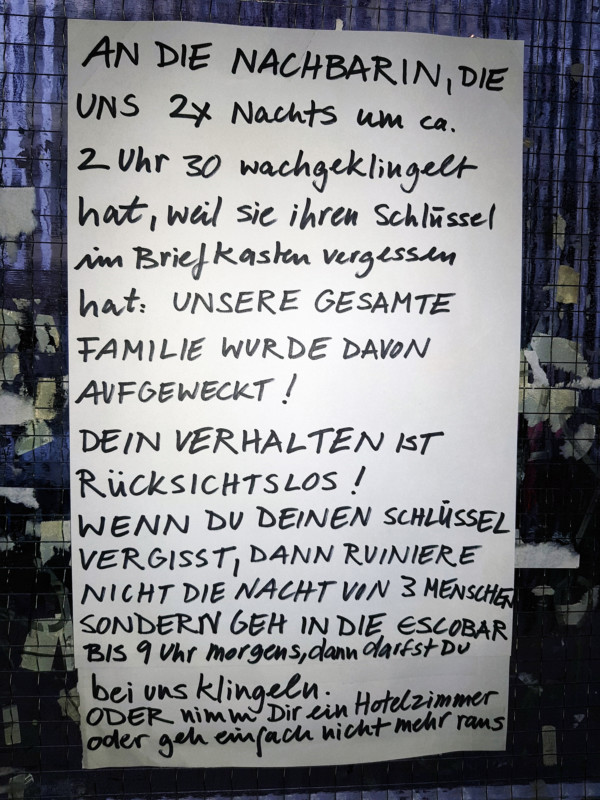 AN DIE NACHBARIN, DIE
UNS 2x Nachts um ca.
2 Uhr 30 wachgeklingelt
hat, weil sie ihren Schlüssel
im Briefkasten vergessen
hat: UNSERE GESAMTE
FAMILIE WURDE DAVON
AUFGEWECKT!
DEIN VERHALTEN IST
RÜCKSICHTSLOS!
WENN DU DEINEN SCHLÜSSEL
VERGISST, DANN RUINIERE
NICHT DIE NACHT VON 3 MENSCHEN
SONDERN GEH IN DIE ESCOBAR
BIS 9 Uhr morgens, dann darfst Du
bei uns klingeln.
ODER nimm Dir ein Hotelzimmer
oder geh einfach nicht mehr raus